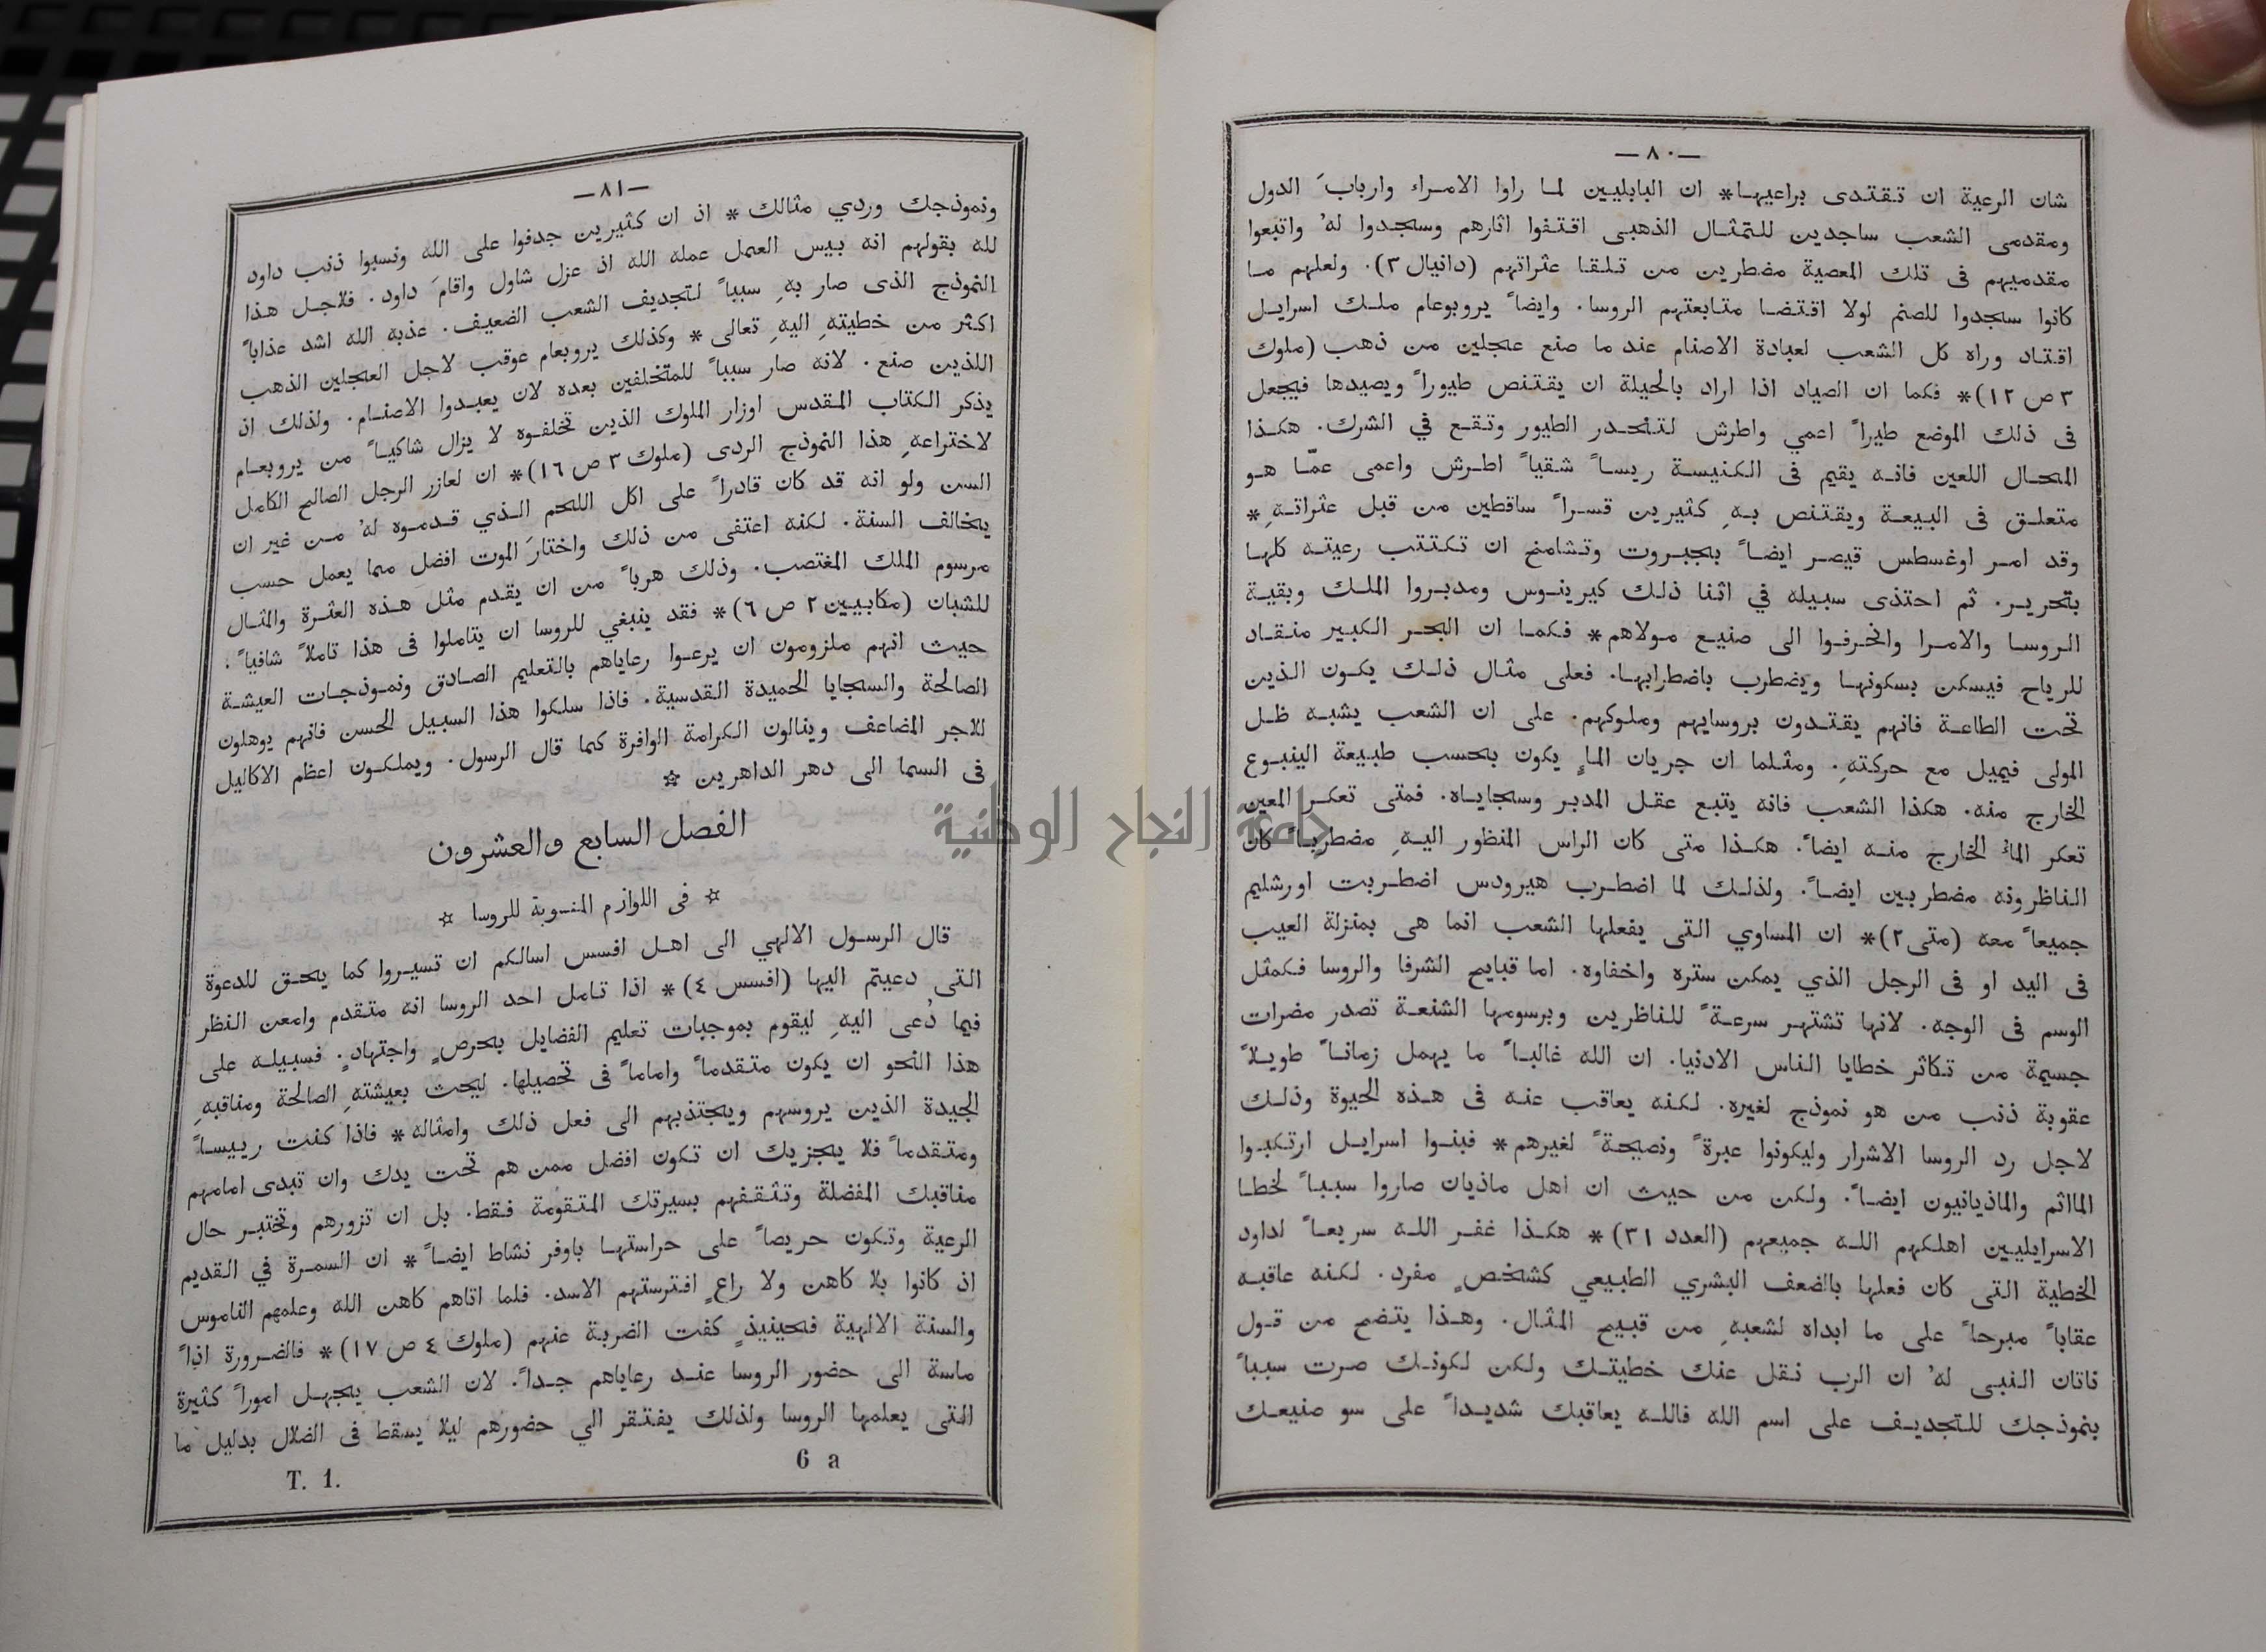 —٨٠—
شان الرعية ان تقتدى براعيها* ان البابليين لما راوا الامراء وارباب الدول
ومقدمى الشعب ساجدين للتمثال الذهبى اقتفوا اثارهم وسجدوا له واتبعوا
مقدميهم فى تلك المعصية مضطرين من تلقا عثراتهم (دانيال ٣). ولعلهم ما
كانوا سجدوا للصنم لولا اقتضا متابعتهم الروسا. وايضاً يروبوعام ملك اسرايل
اقتاد وراه كل الشعب لعبادة الاصنام عند ما صنع عجلين من ذهب (ملوك
٣ ص ١٢)* فكما ان الصياد اذا اراد بالحيلة ان يقتنص طيوراً ويصيدها فيجعل
فى ذلك الموضع طيراً اعمي واطرش لتنحدر الطيور وتقع في الشرك. هكذا
المحال اللعين فانه يقيم فى الكنيسة ريساً شقياً اطرش واعمى عمّا هو
متعلق فى البيعة ويقتنص بهِ كثيرين قسراً ساقطين من قبل عثراتهِ*
وقد امر اوغسطس قيصر ايضاً بجبروت وتشامخ ان تكتتب رعيته كلها
بتحرير. ثم احتذى سبيله في اثنا ذلك كيرينوس ومدبروا الملك وبقية
الروسا والامرا وانحرفوا الى صنيع مولاهم* فكما ان البحر الكبير منقاد
للرياح فيسكن بسكونها ويضطرب باضطرابها. فعلى مثال ذلك يكون الذين
تحت الطاعة فانهم يقتدون بروسايهم وملوكهم. على ان الشعب يشبه ظل
المولى فيميل مع حركتهِ. ومثلما ان جريان الماءِ يكون بحسب طبيعة الينبوع
الخارج منه. هكذا الشعب فانه يتبع عقل المدبر وسجاياه. فمتى تعكر المعين
تعكر الماءُ الخارج منه ايضاً. هكذا متى كان الراس المنظور اليهِ مضطرباً كان
الناظرونه مضطربين ايضاً. ولذلك لما اضطرب هيرودس اضطربت اورشليم
جميعاً معه (متى ٢)* ان المساوي التى يفعلها الشعب انما هى بمنزلة العيب
فى اليد او فى الرجل الذي يمكن ستره واخفاوه. اما قبايح الشرفا والروسا فكمثل
الوسم فى الوجه. لانها تشتهر سرعةً للناظرين وبرسومها الشنعة تصدر مضرات
جسيمة من تكاثر خطايا الناس الادنيا. ان الله غالباً ما يهمل زماناً طويلاً
عقوبة ذنب من هو نموذج لغيره. لكنه يعاقب عنه فى هذه الحيوة وذلك
لاجل رد الروسا الاشرار وليكونوا عبرةً ونصيحةً لغيرهم* فبنوا اسرايل ارتكبوا
المااثم والماذيانيون ايضاً. ولكن من حيث ان اهل ماذيان صاروا سبباً لخطا
الاسرايليين اهلكهم الله جميعهم (العدد ٣١)* هكذا غفر الله سريعاً لداود
الخطية التى كان فعلها بالضعف البشري الطبيعي كشخصٍ مفرد. لكنه عاقبه
عقاباً مبرحاً على ما ابداه لشعبهِ من قبيح المثال. وهذا يتضح من قول
ناتان النبى له ان الرب نقل عنك خطيتك ولكن لكونك صرت سبباً
بنموذجك للتجديف على اسم الله فالله يعاقبك شديداً على سو صنيعك
—٨١—
ونموذجك وردي مثالك* اذ ان كثيرين جدفوا على الله ونسبوا ذنب داود
لله بقولهم انه بيس العمل عمله الله اذ عزل شاول واقامَ داود. فلاجل هذا
النموذج الذى صار بهِ سبباً لتجديف الشعب الضعيف. عذبه الله اشد عذاباً
اكثر من خطيتهِ اليهِ تعالى* وكذلك يروبعام عوقب لاجل العجلين الذهب
اللذين صنع. لانه صار سبباً للمتخلفين بعده لان يعبدوا الاصنام. ولذلك اذ
يذكر الكتاب المقدس اوزار الملوك الذين تخلفوه لا يزال شاكياً من يروبعام
لاختراعهِ هذا النموذج الردى (ملوك ٣ ص ١٦)* ان لعازر الرجل الصالح الكامل
السن ولو انه قد كان قادراً على اكل اللحم الذي قدموه له من غير ان
يخالف السنة. لكنه اعتفى من ذلك واختارَ الموت افضل مما يعمل حسب
مرسوم الملك المغتصب. وذلك هرباً من ان يقدم مثل هذه العثرة والمثال
للشبان (مكابيين ٢ ص ٦)* فقد ينبغي للروسا ان يتاملوا فى هذا تاملاً شافياً.
حيث انهم ملزومون ان يرعوا رعاياهم بالتعليم الصادق ونموذجات العيشة
الصالحة والسجايا الحميدة القدسية. فاذا سلكوا هذا السبيل الحسن فانهم يوهلون
للاجر المضاعف وينالون الكرامة الوافرة كما قال الرسول. ويملكون اعظم الاكاليل
فى السما الى دهر الداهرين ☆
الفصل السابع والعشرون
☆ فى اللوازم المنسوبة للروسا ☆
قال الرسول الالهي الى اهل افسس اسالكم ان تسيروا كما يحق للدعوة
التى دعيتم اليها (افسس ٤)* اذا تامل احد الروسا انه متقدم وامعن النظر
فيما دُعى اليهِ ليقوم بموجبات تعليم الفضايل بحرصٍ واجتهادٍ. فسبيله على
هذا النحو ان يكون متقدماً واماماً فى تحصيلها. ليحث بعيشتهِ الصالحة ومناقبهِ
الجيدة الذين يروسهم ويجتذبهم الى فعل ذلك وامثاله* فاذا كنت رييساً
ومتقدماً فلا يجزيك ان تكون افضل ممن هم تحت يدك وان تبدى امامهم
مناقبك المفضلة وتثقفهم بسيرتك المتقومة فقط. بل ان تزورهم وتختبر حال
الرعية وتكون حريصاً على حراستها باوفر نشاط ايضاً* ان السمرة في القديم
اذ كانوا بلا كاهن ولا راعٍ افترستهم الاسد. فلما اتاهم كاهن الله وعلمهم الناموس
والسنة الالهية فحينيذٍ كفت الضربة عنهم (ملوك ٤ ص ١٧)* فالضرورة اذاً
ماسة الى حضور الروسا عند رعاياهم جداً. لان الشعب يجهل اموراً كثيرة
التى يعلمها الروسا ولذلك يفتقر الي حضورهم ليلا يسقط فى الضلال بدليل ما
T. 1. 6 a
جامعة النجاح الوطنية